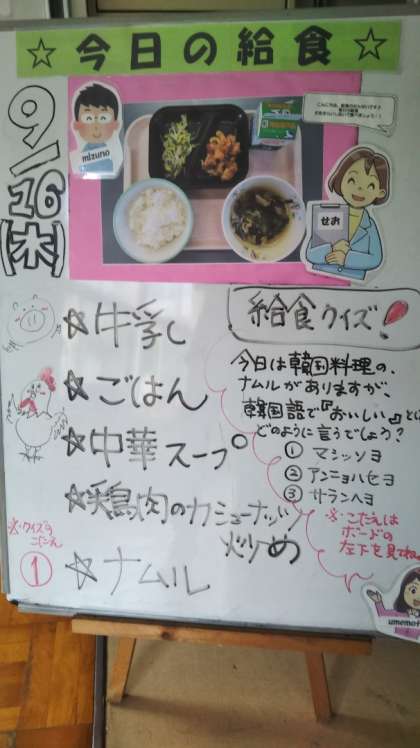 ☆今日の給食☆
9/16
(木)
mizuno
せお
☆牛乳
☆ごはん
☆中華スープ
☆鶏肉のカシューナッツ
炒め
☆ナムル
給食クイズ!
今日は韓国料理の、
ナムルがありますが、
韓国語で『おいしい』と
どのように言うでしょう?
① マシッソヨ
② アンニョハセヨ
③ サランヘヨ
※こたえは
ボードの
左下を見てね
※クイズの
こたえ
①